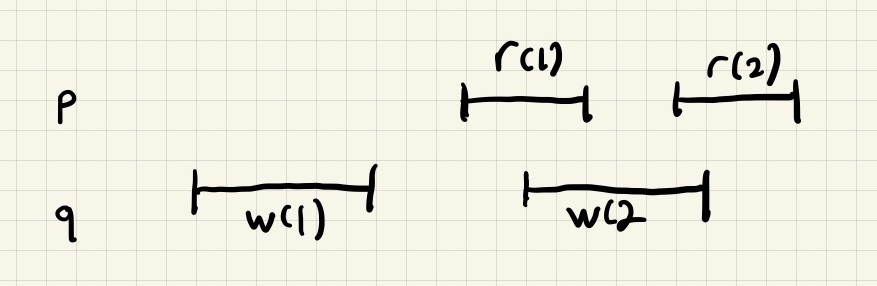 r(1) r(2)
p
q
w(1) w(2